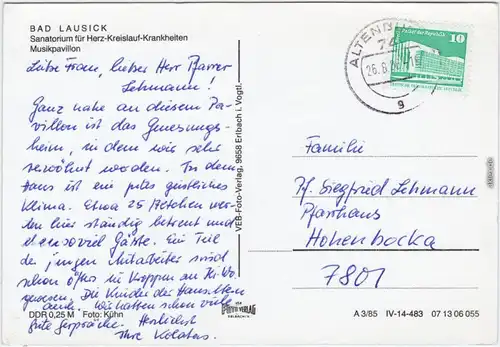 BAD LAUSICK
Sanatorium für Herz-Kreislauf-Krankheiten
Musikpavillon
Liebe Frau, lieber Herr Pfarrer
Lehmann!
Ganz nahe an diesem Pa-
villon ist das Genesungs-
heim, in dem wir sehr
verwöhnt werden. In dem
Haus ist ein gutes geistliches
Klima. Etwa 25 werden
hier ständig betreut und
ebensoviel Gäste. Ein Teil
der jungen Mitarbeiter sind
schon öfter in gewesen. Die Kinder der Hauseltern
auch. Wir hatten schon viele
gute Gespräche. Herzlichst
Ihre
DDR 0,25 M Foto: Kühn
VEB-Foto-Verlag, 9658 Erlbach i. Vogtl.
FOTO VERLAG
ERLBACH
ALTENBU
74
26.8.
g
Palast der Republik
10
DEUTSCHE DEMOKRATISCHE REPUBLIK
Familie
Pf. Siegfried Lehmann
Pfarrhaus
Hohenbocka
7801
A 3/85 IV-14-483 07 13 06 055